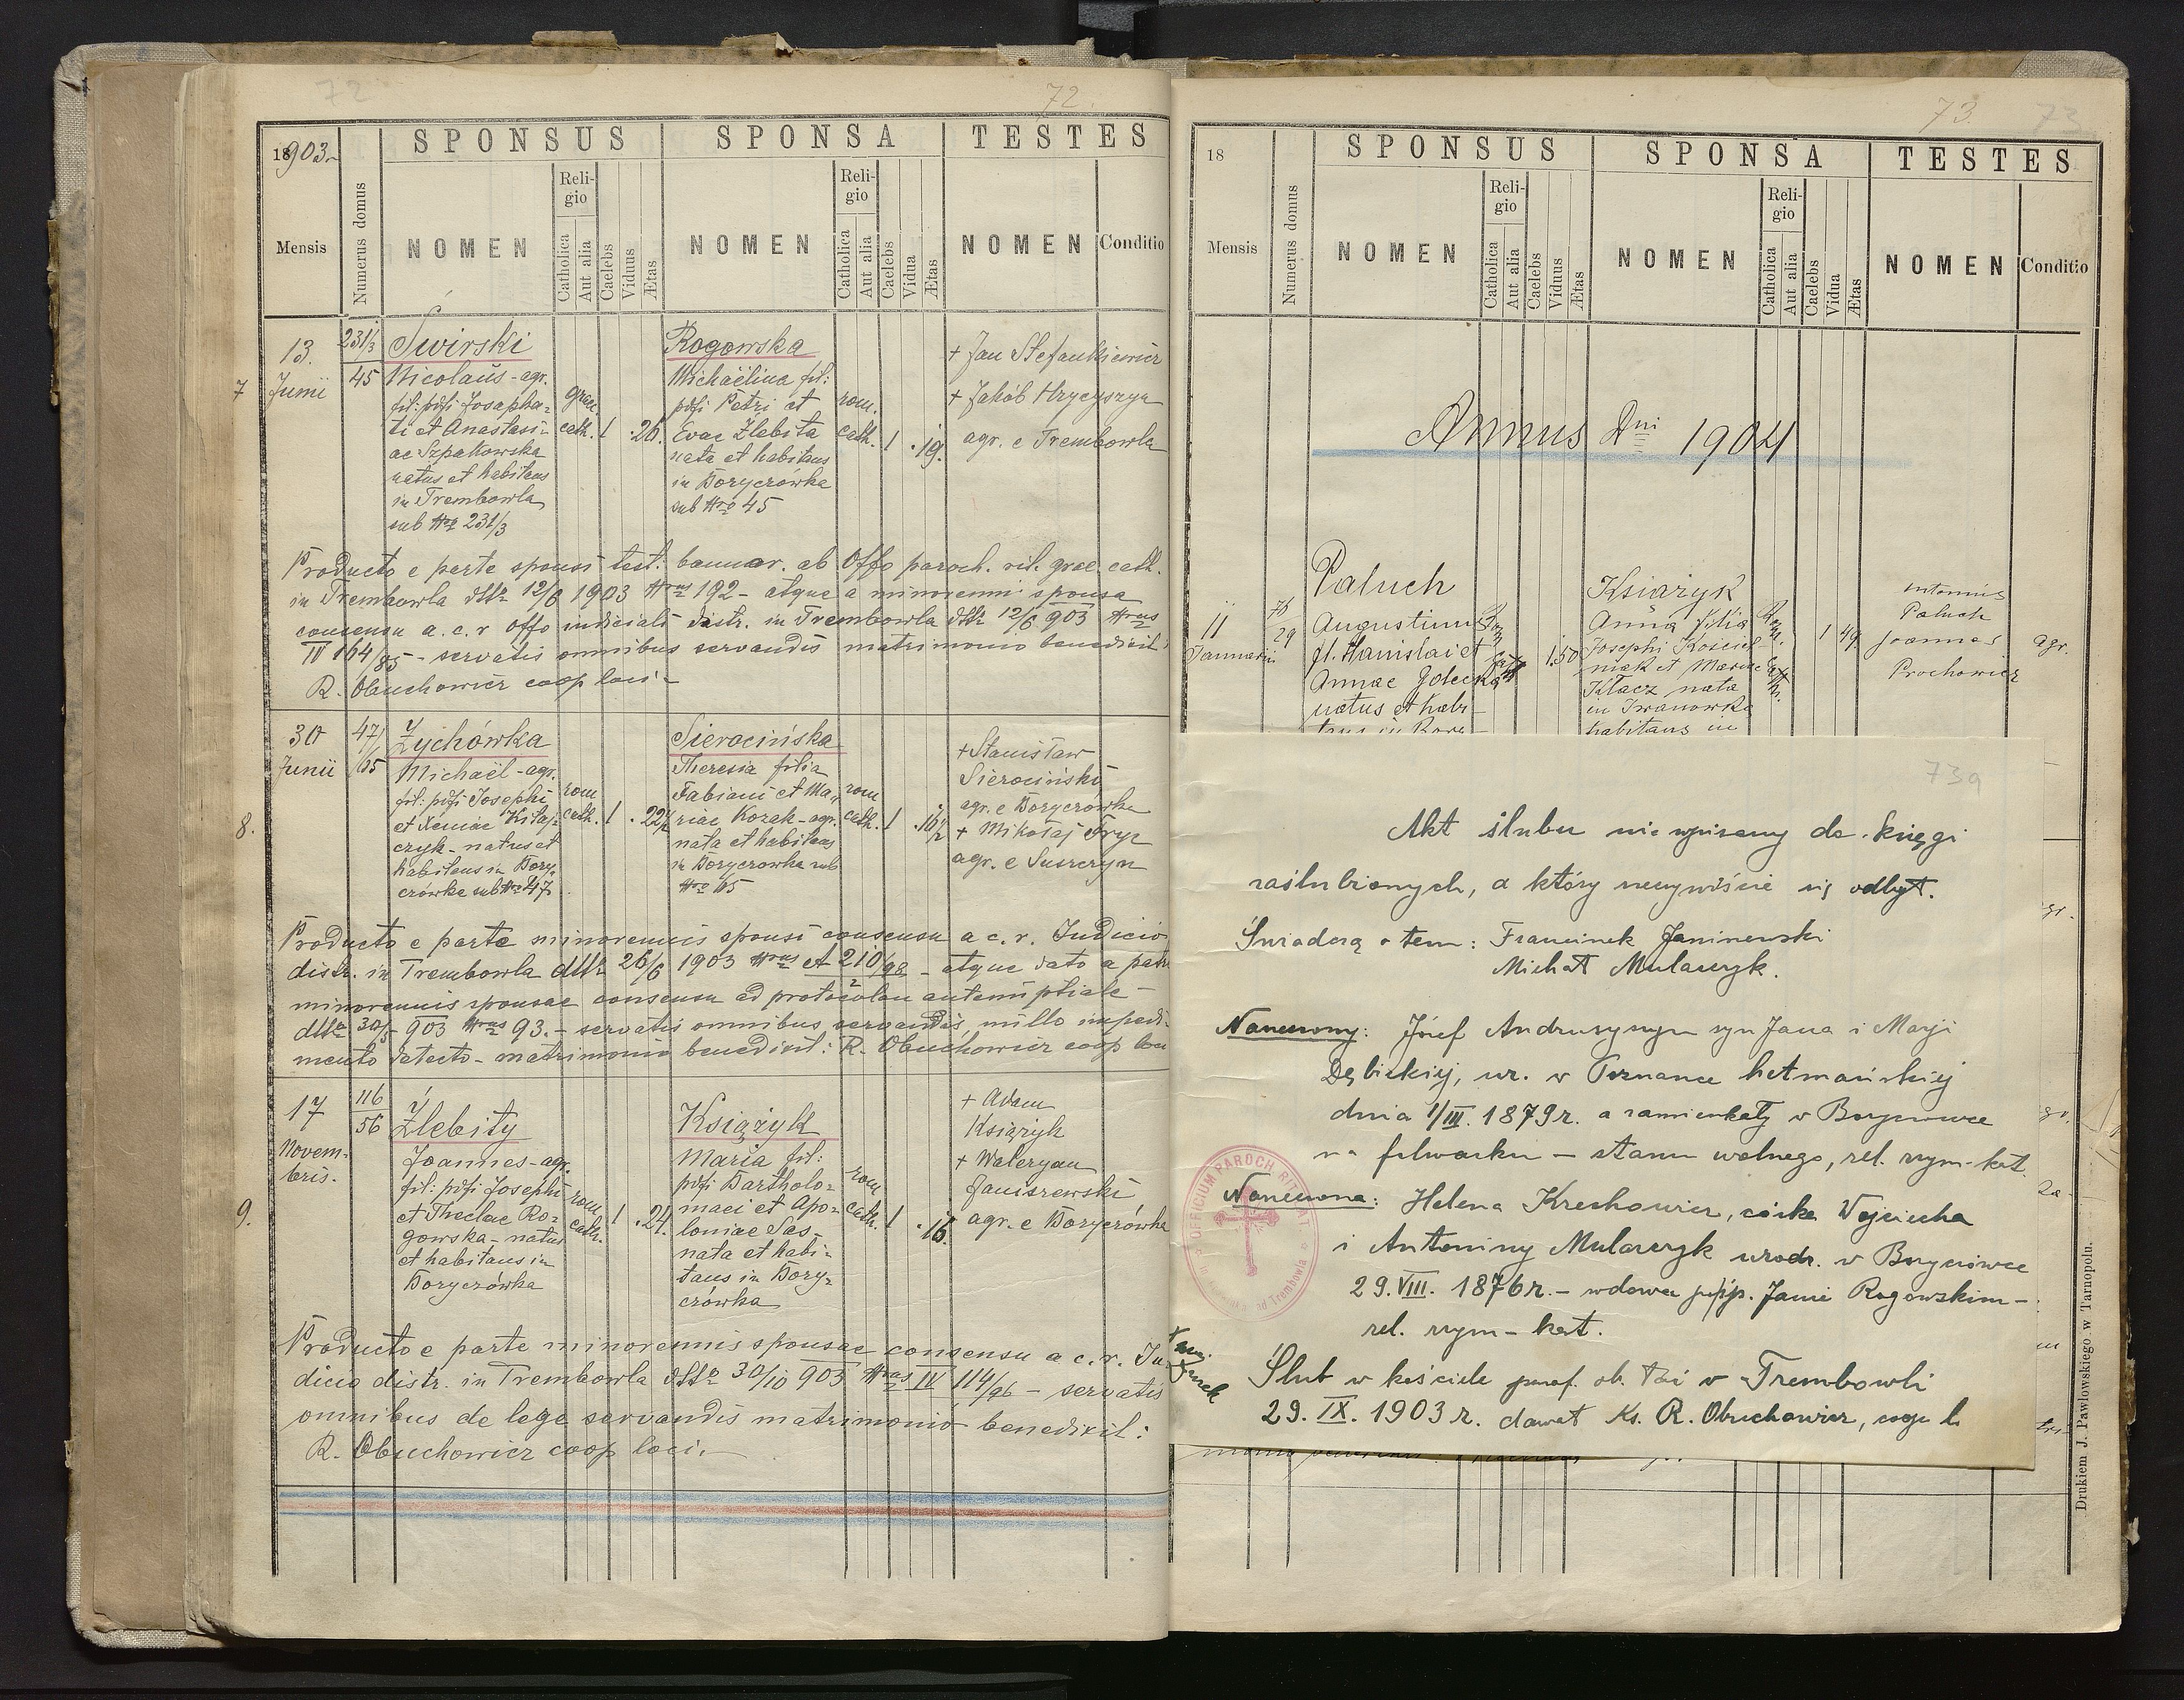 72
72.
1903
SPONSUS
SPONSA
TESTES
Mensis
Numerus domus
NOMEN
Religio
Catholica
Aut alia
Caelebs
Viduus
Ætas
NOMEN
Religio
Catholica
Aut alia
Caelebs
Vidua
Ætas
NOMEN
Conditio
7
13.
Junii
231/3
45
Świrski
Nicolaus - agr.
fil: pdfi Josapha-
ti et Anastasi-
ae Szpakowska
natus et habitans
in Trembowla
sub Nro 231/3
graec.
cath.
1
26.
Rogowska
Michaëlina fil:
pdfi Petri et
Evae Źlebita
nata et habitans
in Borycrówka
sub Nro 45
rom.
cath.
1
19.
+ Jan Stefankiewicz
+ Jakób Hrycyszyn
agr. e Trembowla
Producto e parte sponsi test. bannor. ab Offo paroch. rit. graec. cath.
in Trembowla dtto 12/6 1903 Nrus 192 - atque a minorenni sponsa
consensu a. c. r. offo iudiciali distr. in Trembowla dtto 12/6 903 Nrus
IV 164/85 - servatis omnibus servandis matrimonio benedixit:
R. Obuchowicz coop loci -
8.
30
Junii
47
65
Żychówka
Michaël - agr.
fil: pdfi Josephi
et Xeniae Kitaj-
czyk - natus et
habitans in Bory-
crówka sub Nro 47
rom
cath.
1
22 1/2
Sierocińska
Theresia filia
Fabiani et Ma-
riae Kozak - agr.
nata et habitans
in Borycrowka sub
Nro 65
rom
cath.
1
16 1/2
+ Stanisław
Sierociński
agr. e Borycrówka
+ Mikołaj Fryz
agr. e Suszczyn
Producto e parte minorennis sponsi consensu a c. r. Iudicio
distr. in Trembowla dtto 26/6 1903 Nrus A 210/98 - atque dato a patre
minorennis sponsae consensu ad protocolon antenuptiale -
dtto 30/5 903 Nrus 93. - servatis omnibus servandis, nullo impedi-
mento detecto - matrimonio benedixit: R. Obuchowicz coop loci
9.
17
Novem-
bris.
116
56
Źlebity
Joannes - agr.
fil: pdfi Josephi
et Theclae Ro-
gowska - natus
et habitans in
Borycrówka
rom
cath.
1
24.
Książyk
Maria fil:
pdfi Bartholo-
maei et Apo-
loniae Sas -
nata et habi-
tans in Bory-
crówka
rom
cath.
1
16.
+ Adam
Książyk
+ Waleryan
Janiszewski
agr. e Borycrówka
Producto e parte minorennis sponsae consensu a c. r. Iu-
dicio distr. in Trembowla dtto 30/10 903 Nrus IV 114/96 - servatis
omnibus de lege servandis matrimonio benedixit:
R. Obuchowicz coop loci.
73.
73
18
SPONSUS
SPONSA
TESTES
Mensis
Numerus domus
NOMEN
Religio
Catholica
Aut alia
Caelebs
Viduus
Ætas
NOMEN
Religio
Catholica
Aut alia
Caelebs
Vidua
Ætas
NOMEN
Conditio
Annus Dni 1904
11
Januarii
29
Paluch
Augustinus
fl. Stanislai et
Annae Golecka
natus et habi-
1
50
Książyk
Anna filia
Josephi Kościel-
niak et Mariae
Kłacz nata
in Iwanowka
habitans in
Rom.
Cath.
1
49
Antonius
Paluch
Joannes
Prochowicz
agr.
73a
Akt ślubu nie wpisany do księgi
zaślubionych, a który rzeczywiście się odbył.
Świadczą o tem: Franciszek Janiszewski
Michał Mularczyk.
Narzeczony: Józef Andruszyszyn syn Jana i Maryi
Dębickiej, ur. w Poznance hetmańskiej
dnia 1/III. 1879 r. a zamieszkały w Borycrowce
na folwarku - stanu wolnego, rel. rzym-kat.
Narzeczona: Helena Krechowicz, córka Wojciecha
i Antoniny Mularczyk urodz. w Borycrówce
29. VIII. 1876 r. - wdowa po śp. Janie Rogowskim -
rel. rzym - kat.
Ślub w kościele paraf. ob. łac. w Trembowli
29. IX. 1903 r. dawał Ks. R. Obuchowicz, coop. l.
OFFICIUM PAROCH RIT LAT
Drukiem J. Pawłowskiego w Tarnopolu.